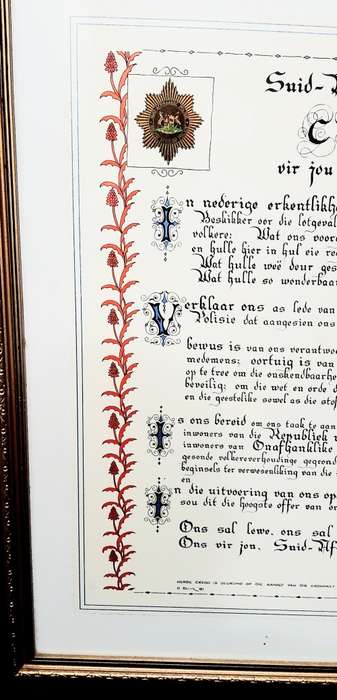 Suid-A
C
vir jou
In nederige erkentlikhe
Beskikker oor die lotgeval
volkere: Wat ons voor
en hulle hier in hul eie re
Wat hulle weë deur ges
Wat hulle so wonderbaar
Verklaar ons as lede van
Polisie dat aangesien ons
bewus is van ons verantwo
medemens; oortuig is van
op te tree om die onskendbaarhe
beveilig; om die wet en orde d
en die geestelike sowel as die stof
is ons bereid om ons taak te aan
inwoners van die Republiek
inwoners van Onafhanklike
gesonde volkereverhoudinge gegrond
beginsels ter verwesenliking van die
en
in die uitvoering van ons op
sou dit die hoogste offer van on
Ons sal lewe, ons sal
Ons vir jou, Suid-Af
HIERDIE CREDO IS